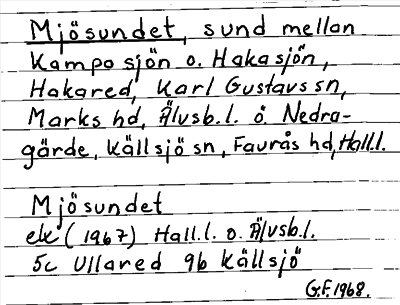 Mjösundet, sund mellan
Kamposjön o. Hakasjön,
Hakared, Karl Gustavs sn,
Marks hd, Älvsb.l. o. Nedra-
gärde, Källsjö sn, Faurås hd, Hall.l.
Mjösundet
ek (1967) Hall.l. o. Älvsb.l.
5c Ullared 9b Källsjö
G.F. 1968.